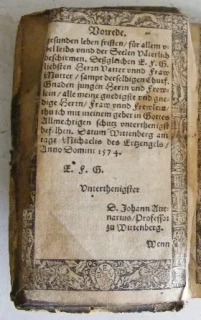 Vorrede.
gesunden leben fristen / für allem v-
bel leibs vnnd der Seelen Väterlich
beschirmen. Desgleichen E. F. G.
liebsten Herrn Vatter vnnd Fraw
Mutter / sampt derselbigen
Gnaden jungen Herrn vnd Frew-
lein / alle meine gnedigste vnd gne-
dige Herrn / Fraw vnnd Frewlein
thu ich mit meinem gebet in Gottes
Allmechtigen schutz vnterthenigst
befelhen. Datum Wittenberg am
tage Michaelis des Ertzengels /
Anno Domini 1574.
E. F. G.
Vnterthenigster
D. Johann
narius / Professor
zu Wittenberg.
Wenn